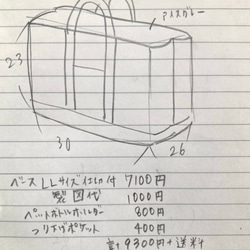 アイスグレー
23
30
26
ベース LLサイズ 仕切付 7100円
製図代 1000円
ペットボトルホルダー 800円
つり下げポケット 400円
計 9300円+送料